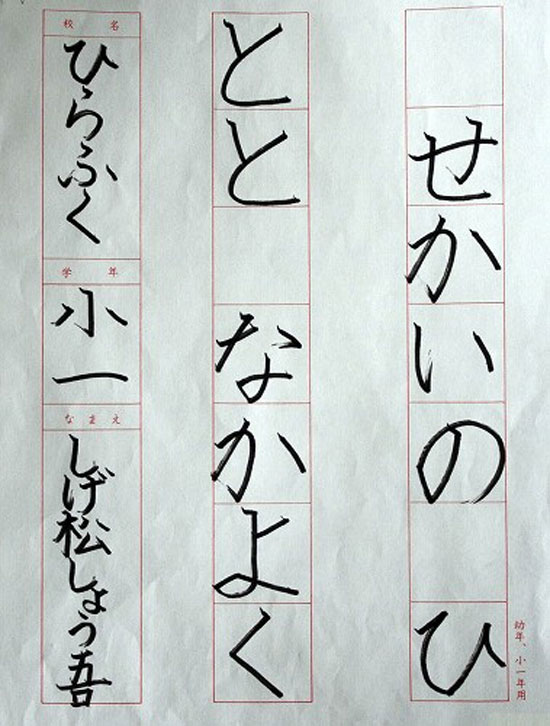 せかいの ひ
とと なかよく
校名
ひらふく
学年
小一
なまえ
しげ松しょう吾
幼年、小一年用